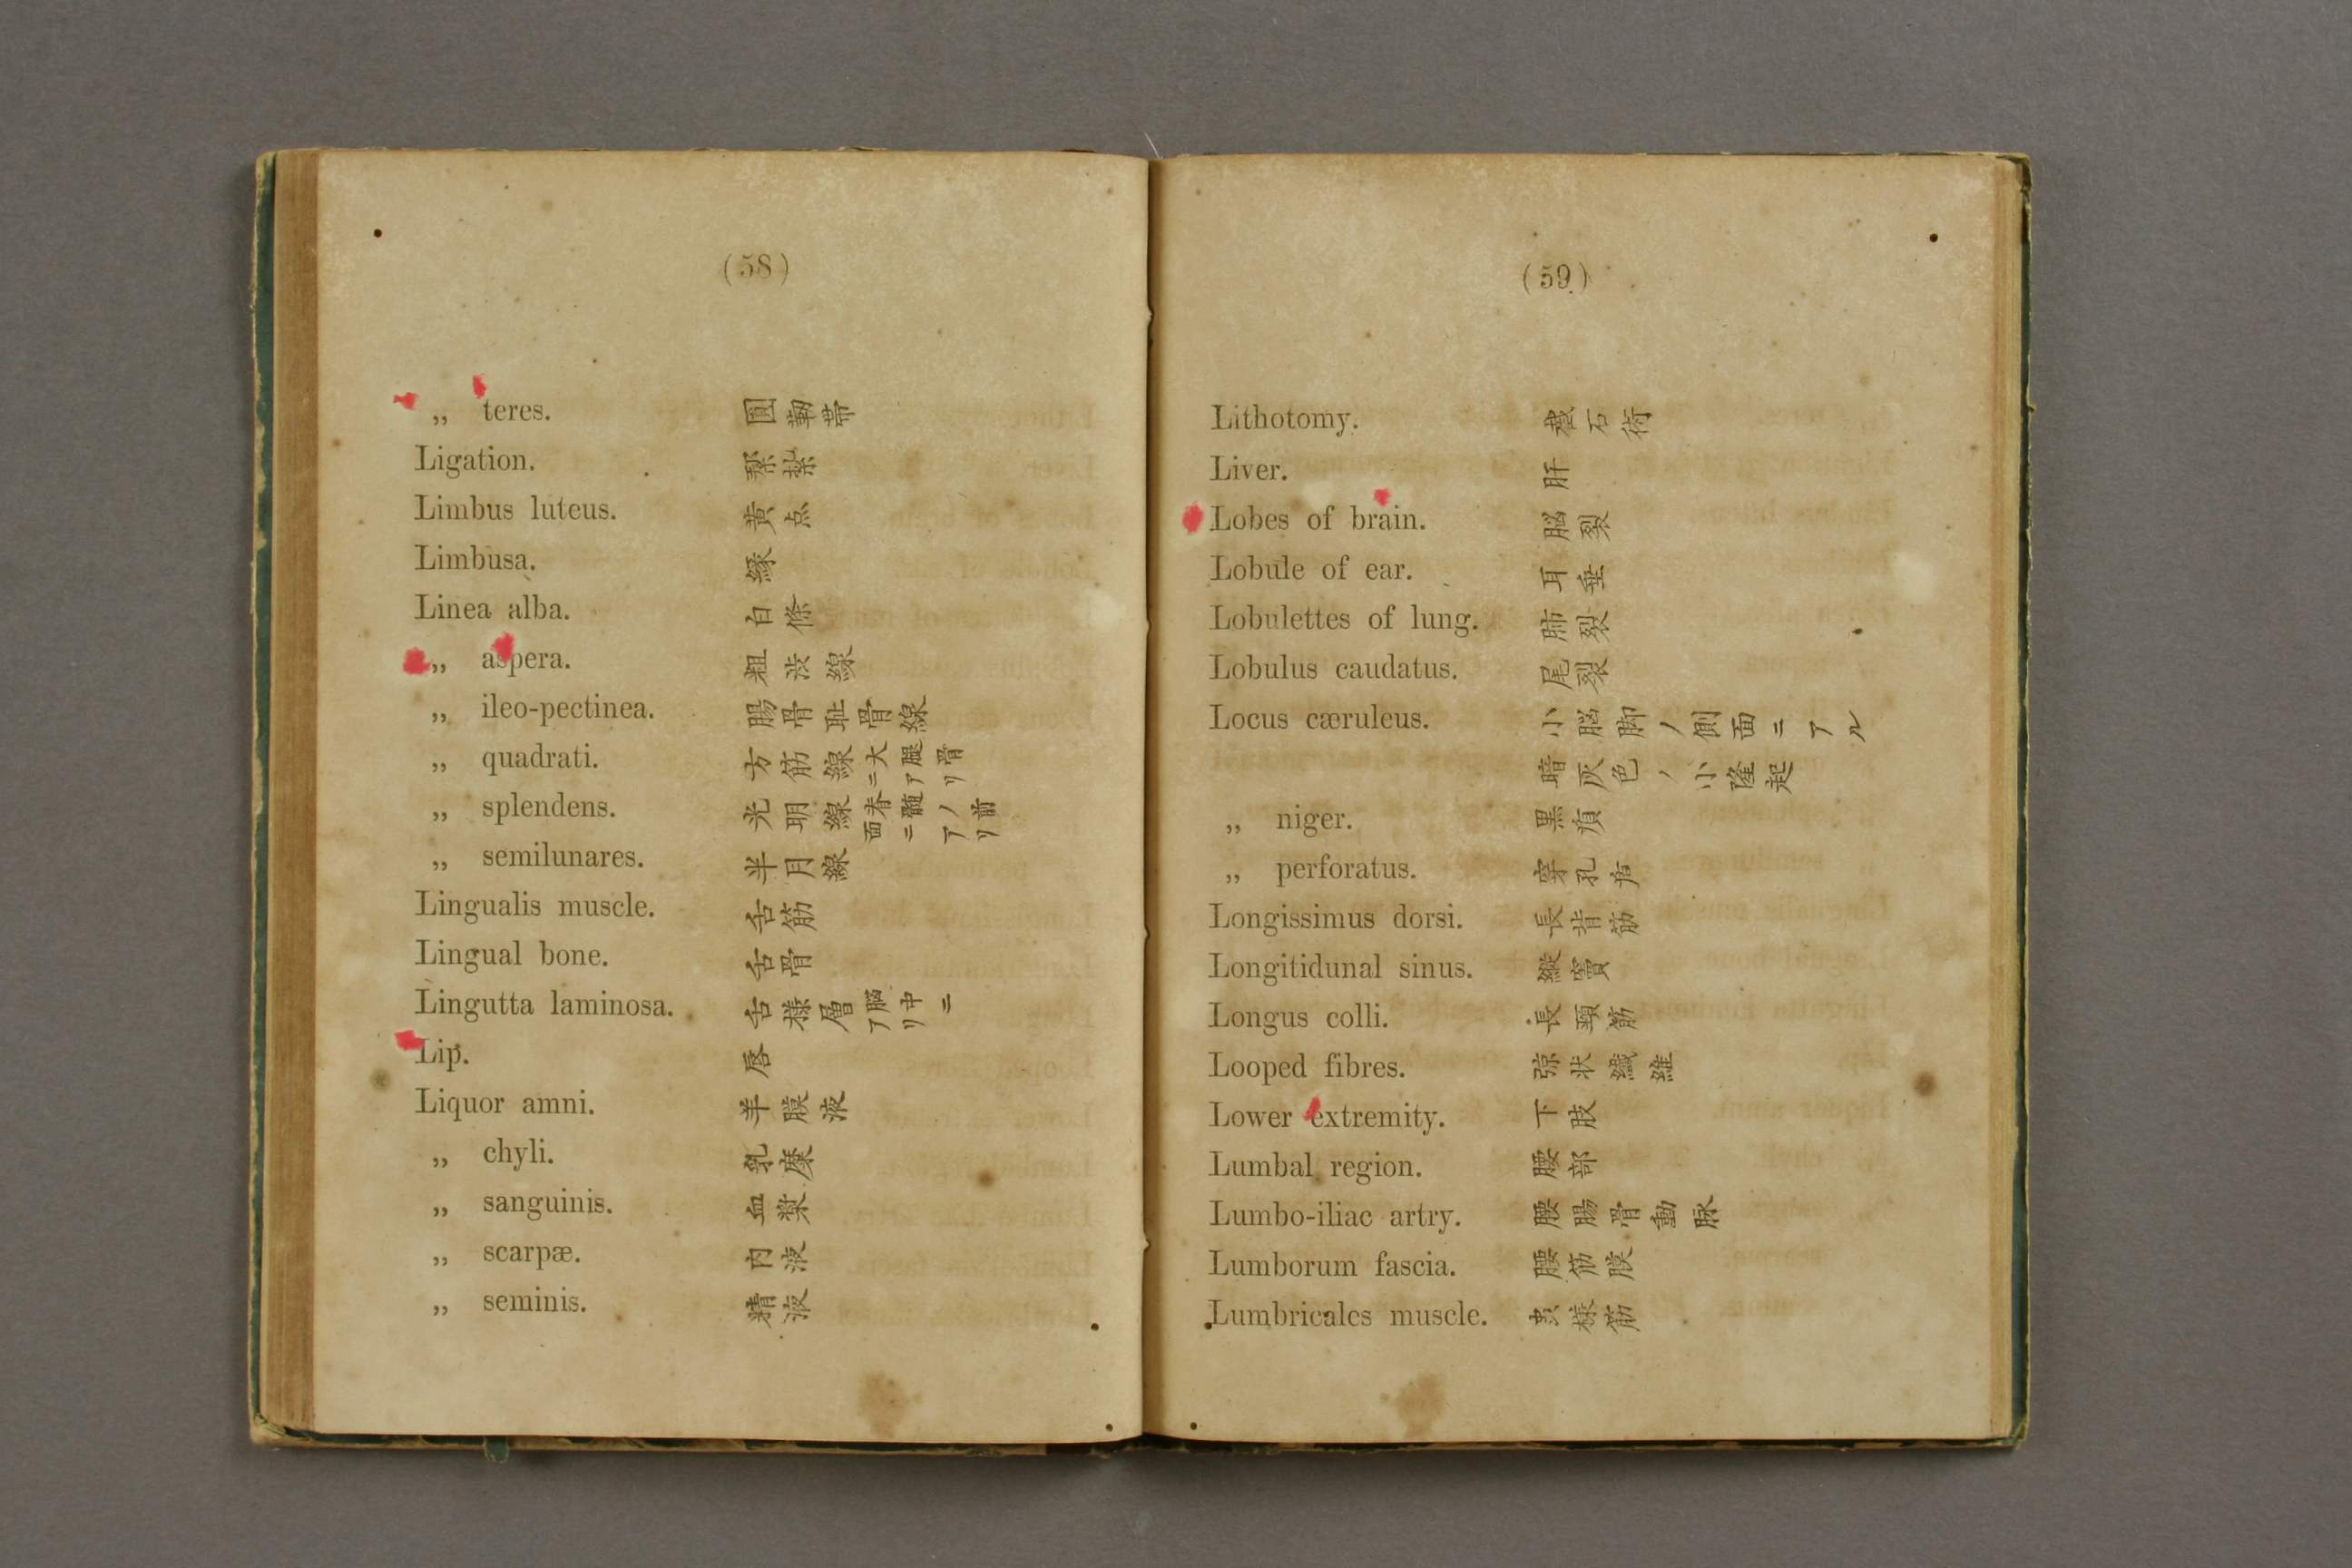 (58)
„ teres. 圓靭帯
Ligation. 緊紮
Limbus luteus. 黄点
Limbusa. 縁
Linea alba. 白條
„ aspera. 粗渋線
„ ileo-pectinea. 腸骨耻骨線
„ quadrati. 方筋線大腿骨ニアリ
„ splendens. 光明線脊髄ノ前面ニアリ
„ semilunares. 半月線
Lingualis muscle. 舌筋
Lingual bone. 舌骨
Lingutta laminosa. 舌様層脳中ニアリ
Lip. 唇
Liquor amni. 羊膜液
„ chyli. 乳糜
„ sanguinis. 血漿
„ scarpæ. 内液
„ seminis. 精液
(59)
Lithotomy. 截石術
Liver. 肝
Lobes of brain. 脳裂
Lobule of ear. 耳垂
Lobulettes of lung. 肺裂
Lobulus caudatus. 尾裂
Locus cæruleus. 小脳脚ノ側面ニアル
暗灰色ノ小隆起
„ niger. 黒痕
„ perforatus. 穿孔
Longissimus dorsi. 長背筋
Longitidunal sinus. 縦竇
Longus colli. 長頸筋
Looped fibres. 状繊維
Lower extremity. 下肢
Lumbal region. 腰部
Lumbo-iliac artry. 腰腸骨動脉
Lumborum fascia. 腰筋膜
Lumbricales muscle. 虫様筋